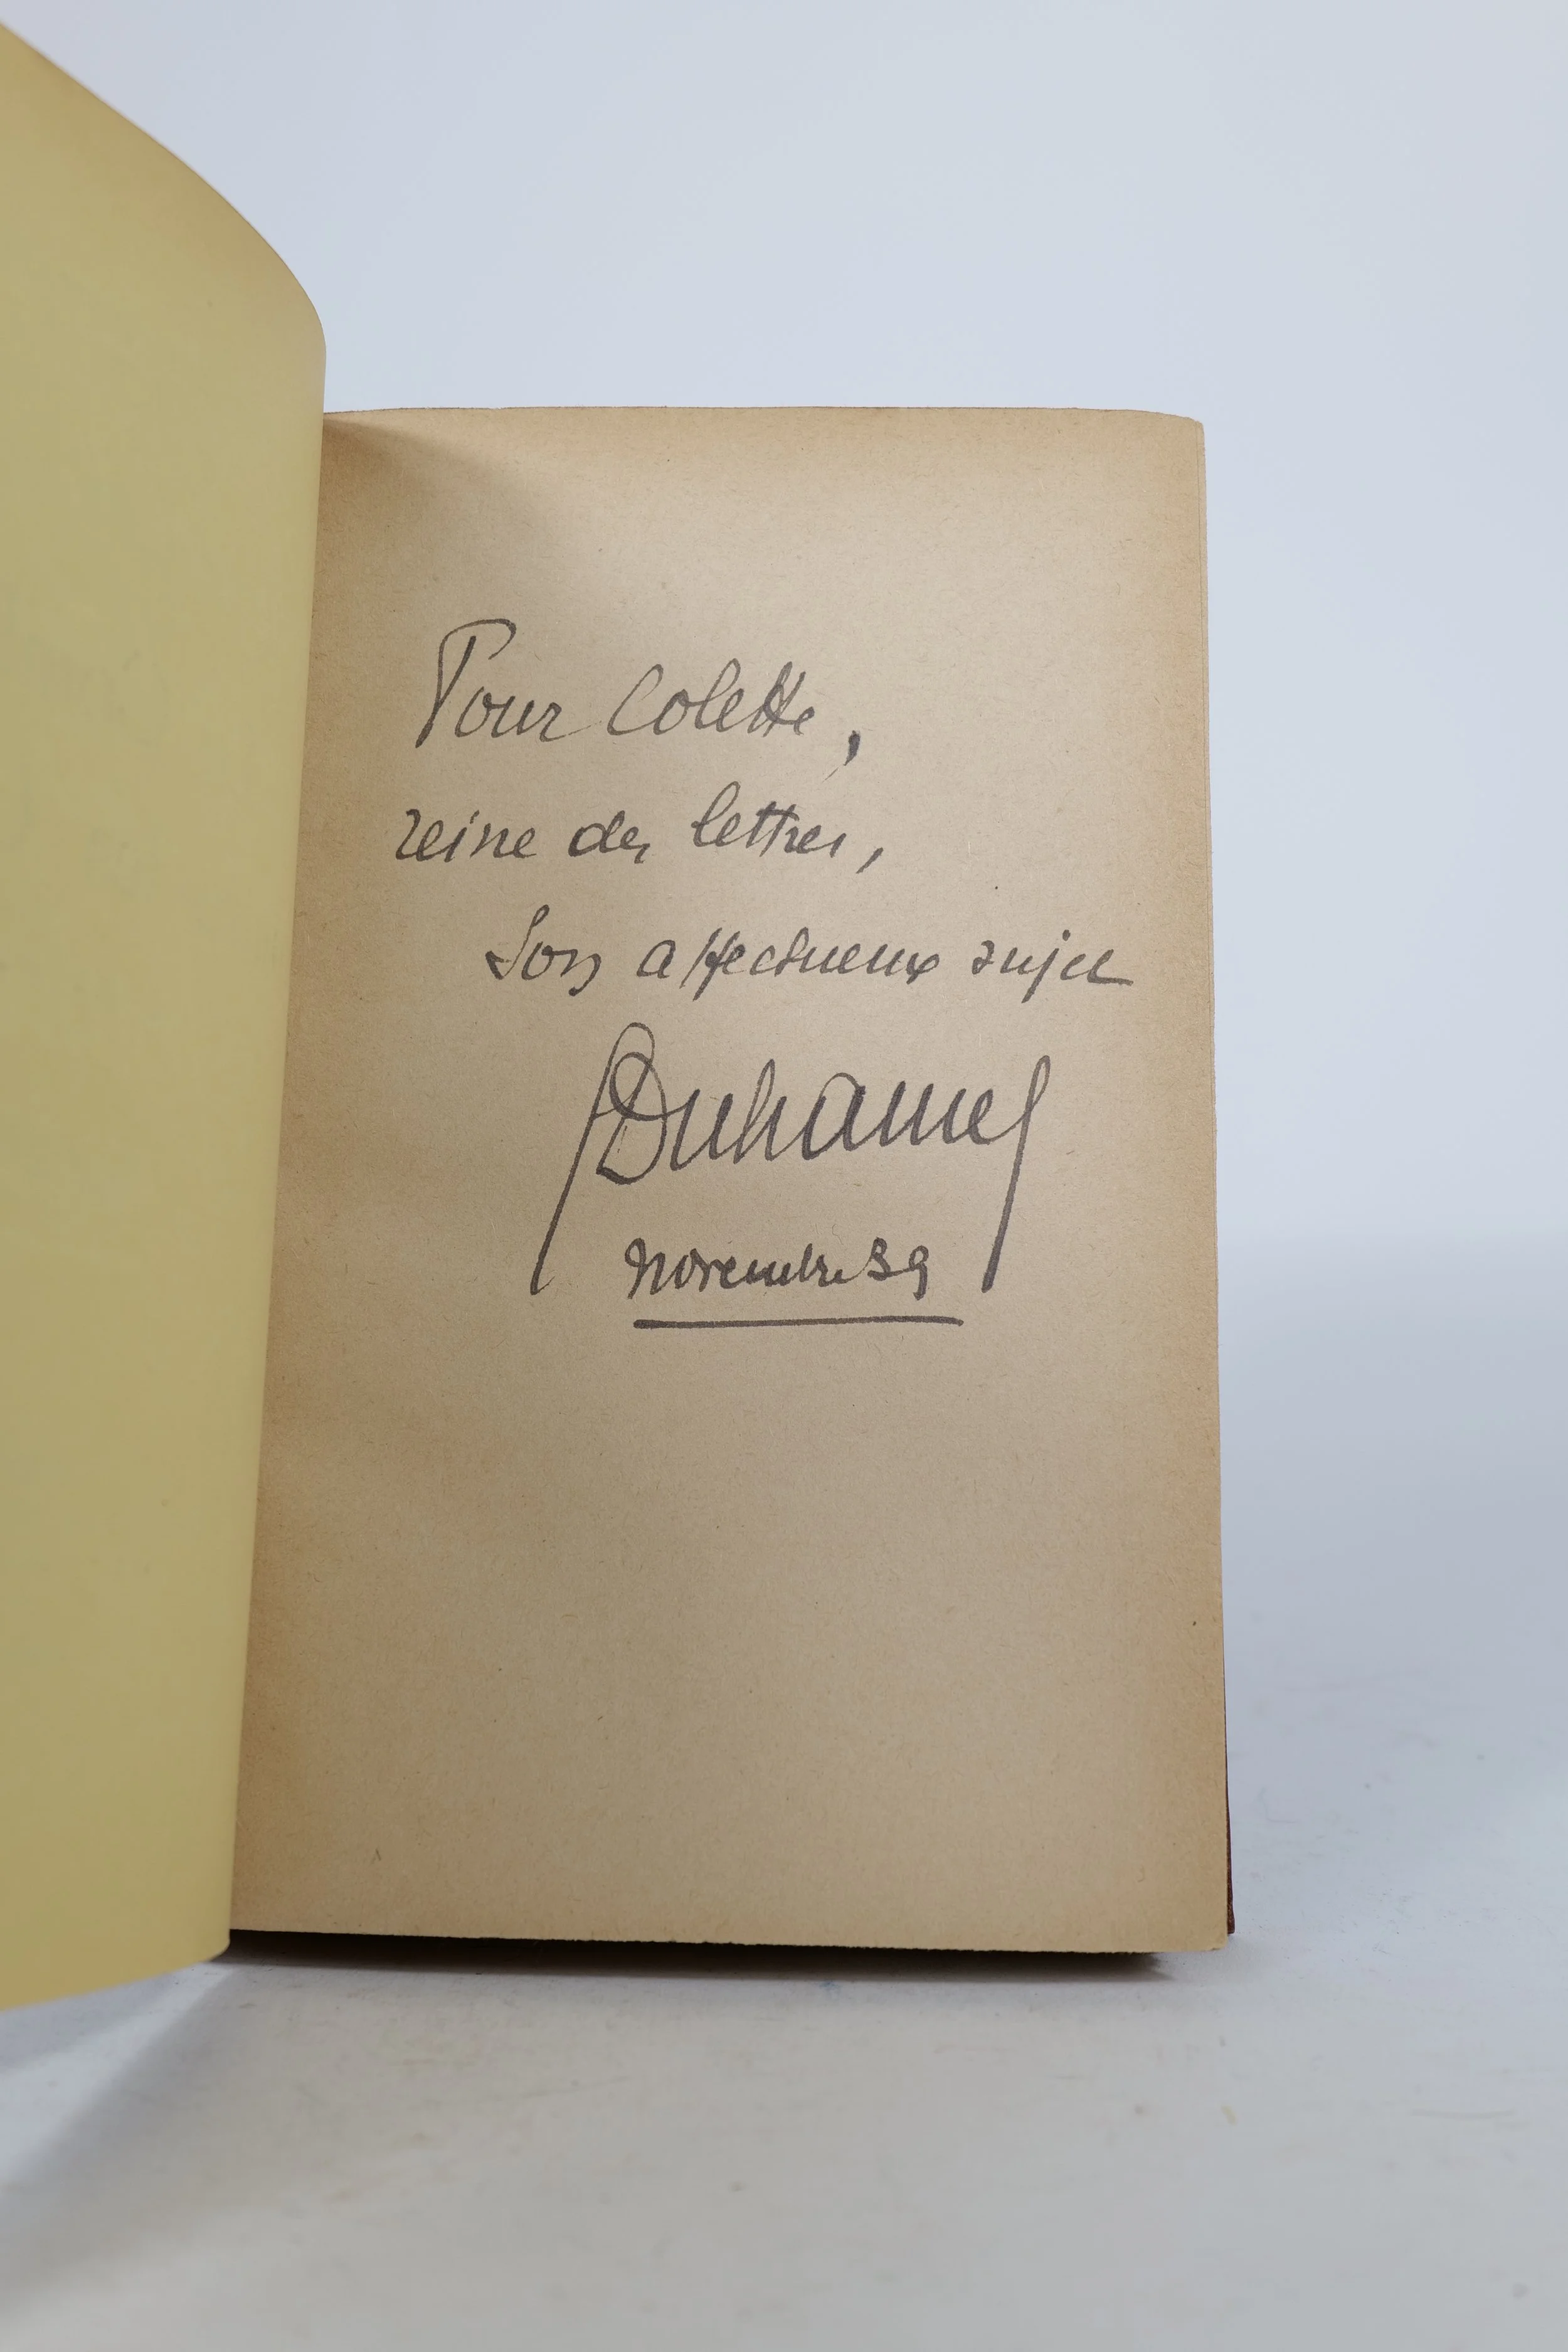 Pour Colette,
reine des lettres,
Son affectueux sujet
GDuhamel
novembre 39